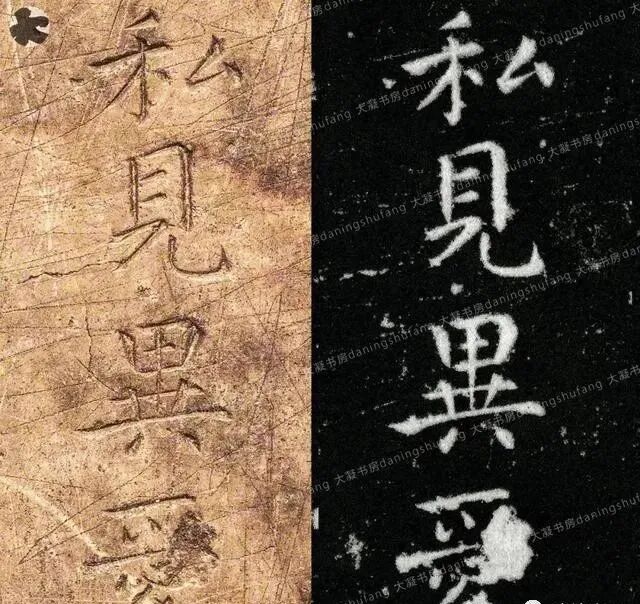 私見異
私見異
大凝书房daningshufang
大凝书房daningshufang
大凝书房daningshufang
大凝书房daningshufang
大凝书房daningshufang
大凝书房daningshufang